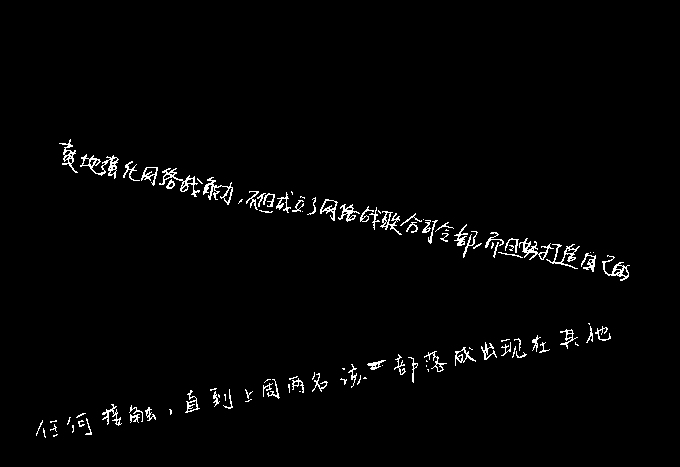 地强化网络战能力,不但成立了网络战联合司令部,而且努打造自己的
任何接触,直到上周两名该部落成出现在其他